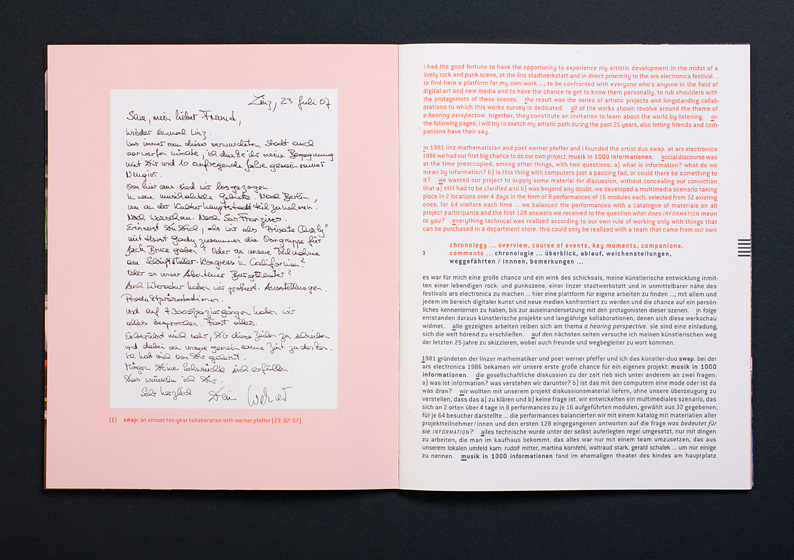 Linz, 23. Juli 07
mein lieber Freund,
wieder einmal Linz.
Was immer man dieser verwunschten Stadt auch
vorwerfen möchte, ich danke ihr meine Begegnung
mit Dir und 10 aufregende Jahre gemeinsamer
Neugier.
Von hier aus sind wir losgezogen.
In neue musikalische Gebiete. Nach Berlin,
um an der Kulturhauptstadt teilzunehmen.
Nach Warschau. Nach San Francisco.
Erinnerst Du Dich, als wir als "Private Chaly"
mit Horst Gady zusammen die Vorgruppe für
Jack Bruce gaben? Oder an unsere Teilnahme
am Schriftsteller-Kongress in Californien?
Oder an unser Abenteuer Burgtheater?
Auch Literatur haben wir probiert. Ausstellungen.
Produktpräsentationen.
Und auf 7000 Spaziergängen haben wir
alles besprochen. Fast alles.
Es berührt mich sehr, Dir diese Zeilen zu schreiben
und dabei an unsere gemeinsame Zeit zu denken.
Ich hab viel von Dir gelernt.
Mögen Deine Sehnsüchte sich erfüllen.
Das wünsche ich Dir.
Sehr herzlich Dein Werner
(1) swap: an almost ten-year collaboration with werner pfeffer (23.07.07)
i had the good fortune to have the opportunity to experience my artistic development in the midst of a
lively rock and punk scene, at the linz stadtwerkstatt and in direct proximity to the ars electronica festival ...
to find here a platform for my own work ..., to be confronted with everyone who's anyone in the field of
digital art and new media and to have the chance to get to know them personally, to rub shoulders with
the protagonists of these scenes. the result was the series of artistic projects and longstanding collab-
orations to which this works survey is dedicated. all of the works shown revolve around the theme of
a hearing perspective. together, they constitute an invitation to learn about the world by listening. on
the following pages, i will try to sketch my artistic path during the past 25 years, also letting friends and com-
panions have their say.
in 1981 linz mathematician and poet werner pfeffer and i founded the artist duo swap. at ars electronica
1986 we had our first big chance to do our own project: musik in 1000 informationen. social discourse was
at the time preoccupied, among other things, with two questions: a) what is information? what do we
mean by information? b) is this thing with computers just a passing fad, or could there be something to
it? we wanted our project to supply some material for discussion, without concealing our conviction
that a) still had to be clarified and b) was beyond any doubt. we developed a multimedia scenario taking
place in 2 locations over 4 days in the form of 8 performances of 16 modules each, selected from 32 existing
ones, for 64 visitors each time ... we balanced the performances with a catalogue of materials on all
project participants and the first 128 answers we received to the question what does INFORMATION mean
to you? everything technical was realized according to our own rule of working only with things that
can be purchased in a department store. this could only be realized with a team that came from our own
chronology ... overview, course of events, key moments, companions,
3 comments ... chronologie ... überblick, ablauf, weichenstellungen,
weggefährten / innnen, bemerkungen ...
es war für mich eine große chance und ein wink des schicksals, meine künstlerische entwicklung inmit-
ten einer lebendigen rock- und punkszene, einer linzer stadtwerkstatt und in unmittelbarer nähe des
festivals ars electronica zu machen ... hier eine plattform für eigene arbeiten zu finden ..., mit allem und
jedem im bereich digitaler kunst und neue medien konfrontiert zu werden und die chance auf ein persön-
liches kennenlernen zu haben, bis zur auseinandersetzung mit den protagonisten dieser szenen. in folge
entstanden daraus künstlerische projekte und langjährige kollaborationen, denen sich diese werkschau
widmet. alle gezeigten arbeiten reiben sich am thema a hearing perspective. sie sind eine einladung,
sich die welt hörend zu erschließen. auf den nächsten seiten versuche ich meinen künstlerischen weg
der letzten 25 jahre zu skizzieren, wobei auch freunde und wegbegleiter zu wort kommen.
1981 gründeten der linzer mathematiker und poet werner pfeffer und ich das künstler-duo swap. bei der
ars electronica 1986 bekamen wir unsere erste große chance für ein eigenes projekt: musik in 1000
informationen. die gesellschaftliche diskussion zu der zeit rieb sich unter anderem an zwei fragen:
a) was ist information? was verstehen wir darunter? b) ist das mit den computern eine mode oder ist da
was dran? wir wollten mit unserem projekt diskussionsmaterial liefern, ohne unsere überzeugung zu
verstellen, dass das a) zu klären und b) keine frage ist. wir entwickelten ein multimediales szenario, das
sich an 2 orten über 4 tage in 8 performances zu je 16 aufgeführten modulen, gewählt aus 32 gegebenen,
für je 64 besucher darstellte ... die performances balancierten wir mit einem katalog mit materialien aller
projektteilnehmer/innen und den ersten 128 eingegangenen antworten auf die frage was bedeutet für
sie INFORMATION? alles technische wurde unter der selbst auferlegten regel umgesetzt, nur mit dingen
zu arbeiten, die man im kaufhaus bekommt. das alles war nur mit einem team umzusetzen, das aus
unserem lokalen umfeld kam: rudolf mitter, martina kornfehl, waltraud stark, gerald schalek ... um nur einige
zu nennen. musik in 1000 informationen fand im ehemaligen theater des kindes am hauptplatz